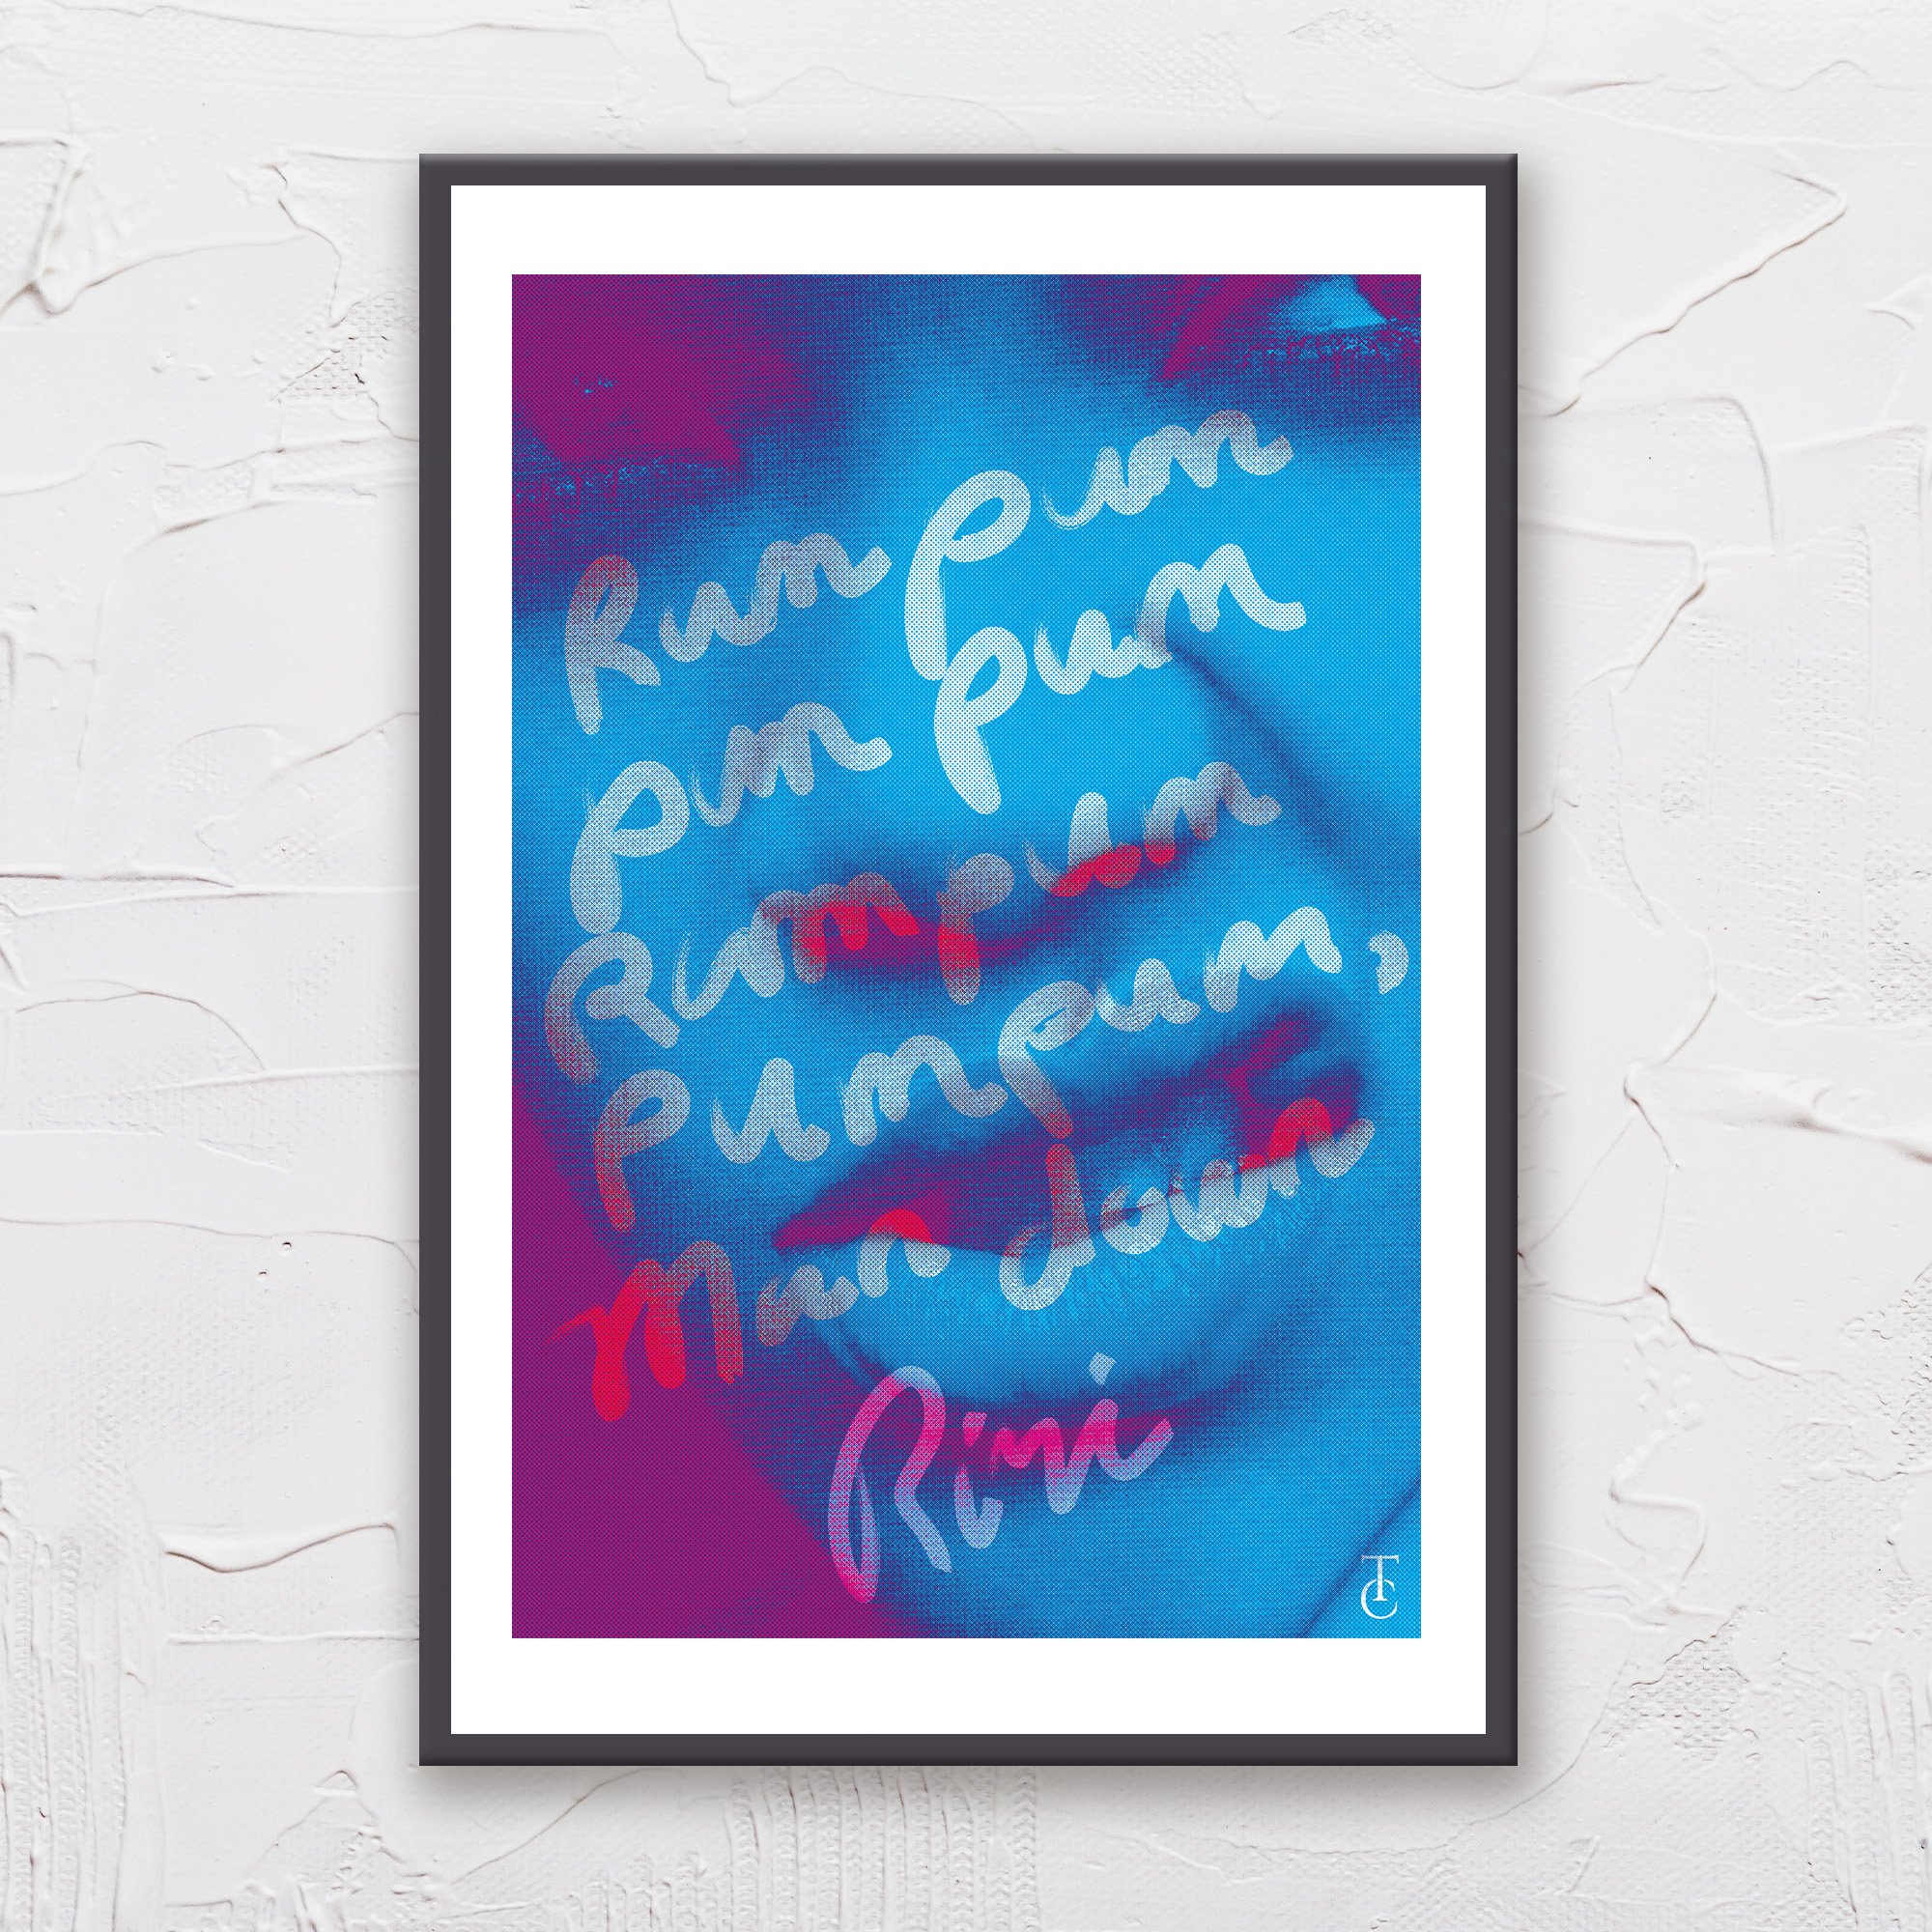 Rum pum
pum pum
Rum pum
pum pum,
Man down
Riri
TC